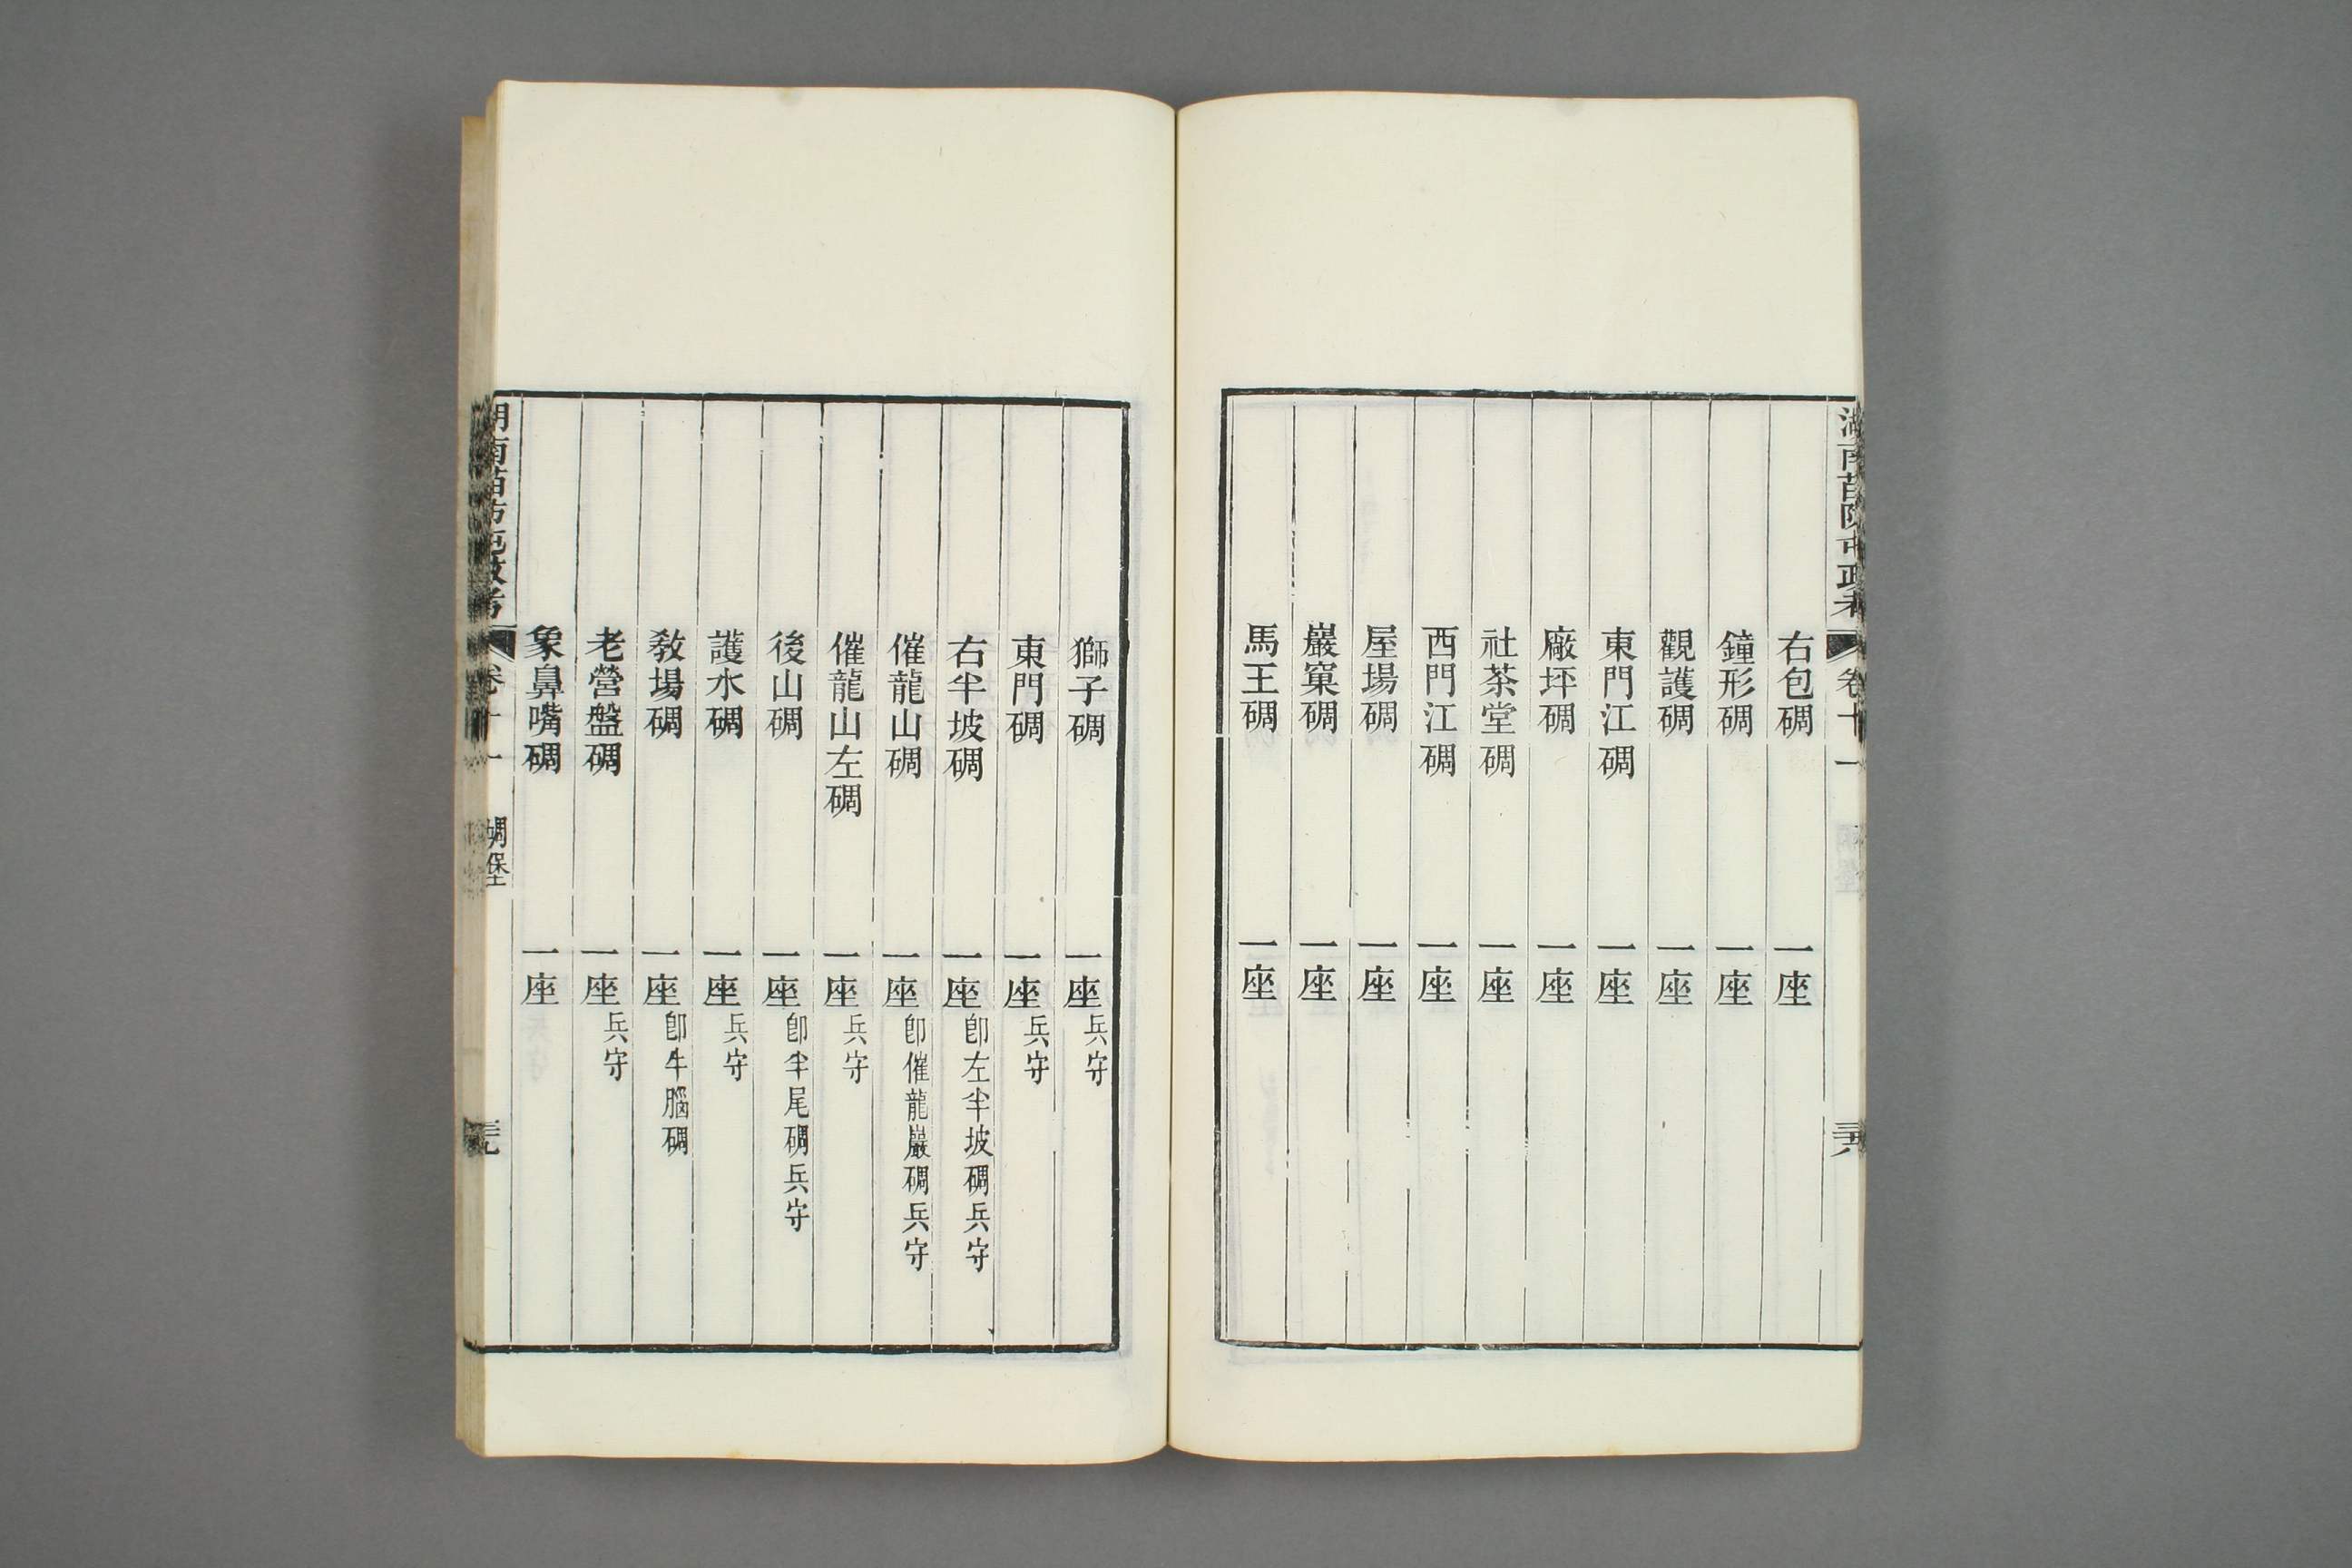 湖南苗防屯政考 卷十一
右包碉 一座
鐘形碉 一座
觀護碉 一座
東門江碉 一座
廠坪碉 一座
社茶堂碉 一座
西門江碉 一座
屋場碉 一座
巖窠碉 一座
馬王碉 一座
獅子碉 一座 兵守
東門碉 一座 兵守
右半坡碉 一座 卽左半坡碉兵守
催龍山碉 一座 卽催龍巖碉兵守
催龍山左碉 一座 兵守
後山碉 一座 卽半尾碉兵守
護水碉 一座 兵守
敎場碉 一座 卽牛腦碉
老營盤碉 一座 兵守
象鼻嘴碉 一座
湖南苗防屯政考 卷十一 碉堡